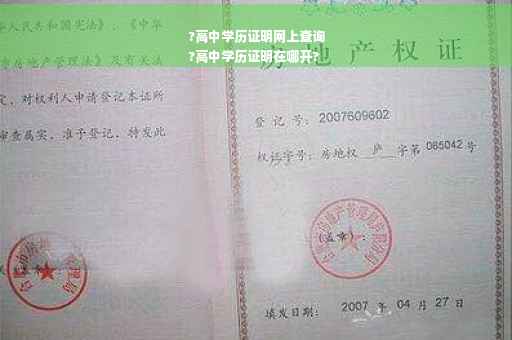 ?高中学历证明网上查询
?高中学历证明在哪开?
华人民共和国宪法》、《中
房地产管理法》及有关法
定，对权利人申请登记本证所
审查属实，准予登记，特发此
房地产权证
登记号：2007609602
权证字号：房地权 庐 字第 065042 号
(盖章)：
填发日期： 2007 年 04 月 27 日